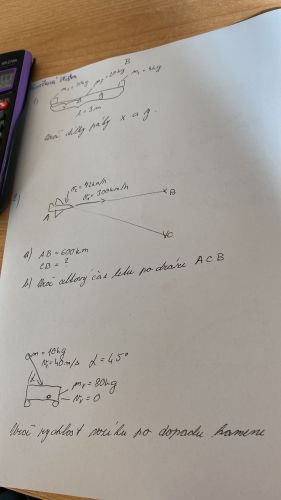 B
1)
m₂ = 20kg
l = 3m
Urči délky páky x a y.
v₂ = 42km/h
v₁ = 300km/h
A
B
C
a) AB = 600km
CB = ?
b) Urči celkový čas letu po dráze ACB
m = 10kg
v₁ = 40m/s α = 45°
α
m₂ = 80kg
v₂ = 0
Urči rychlost vozíku po dopadu kamene